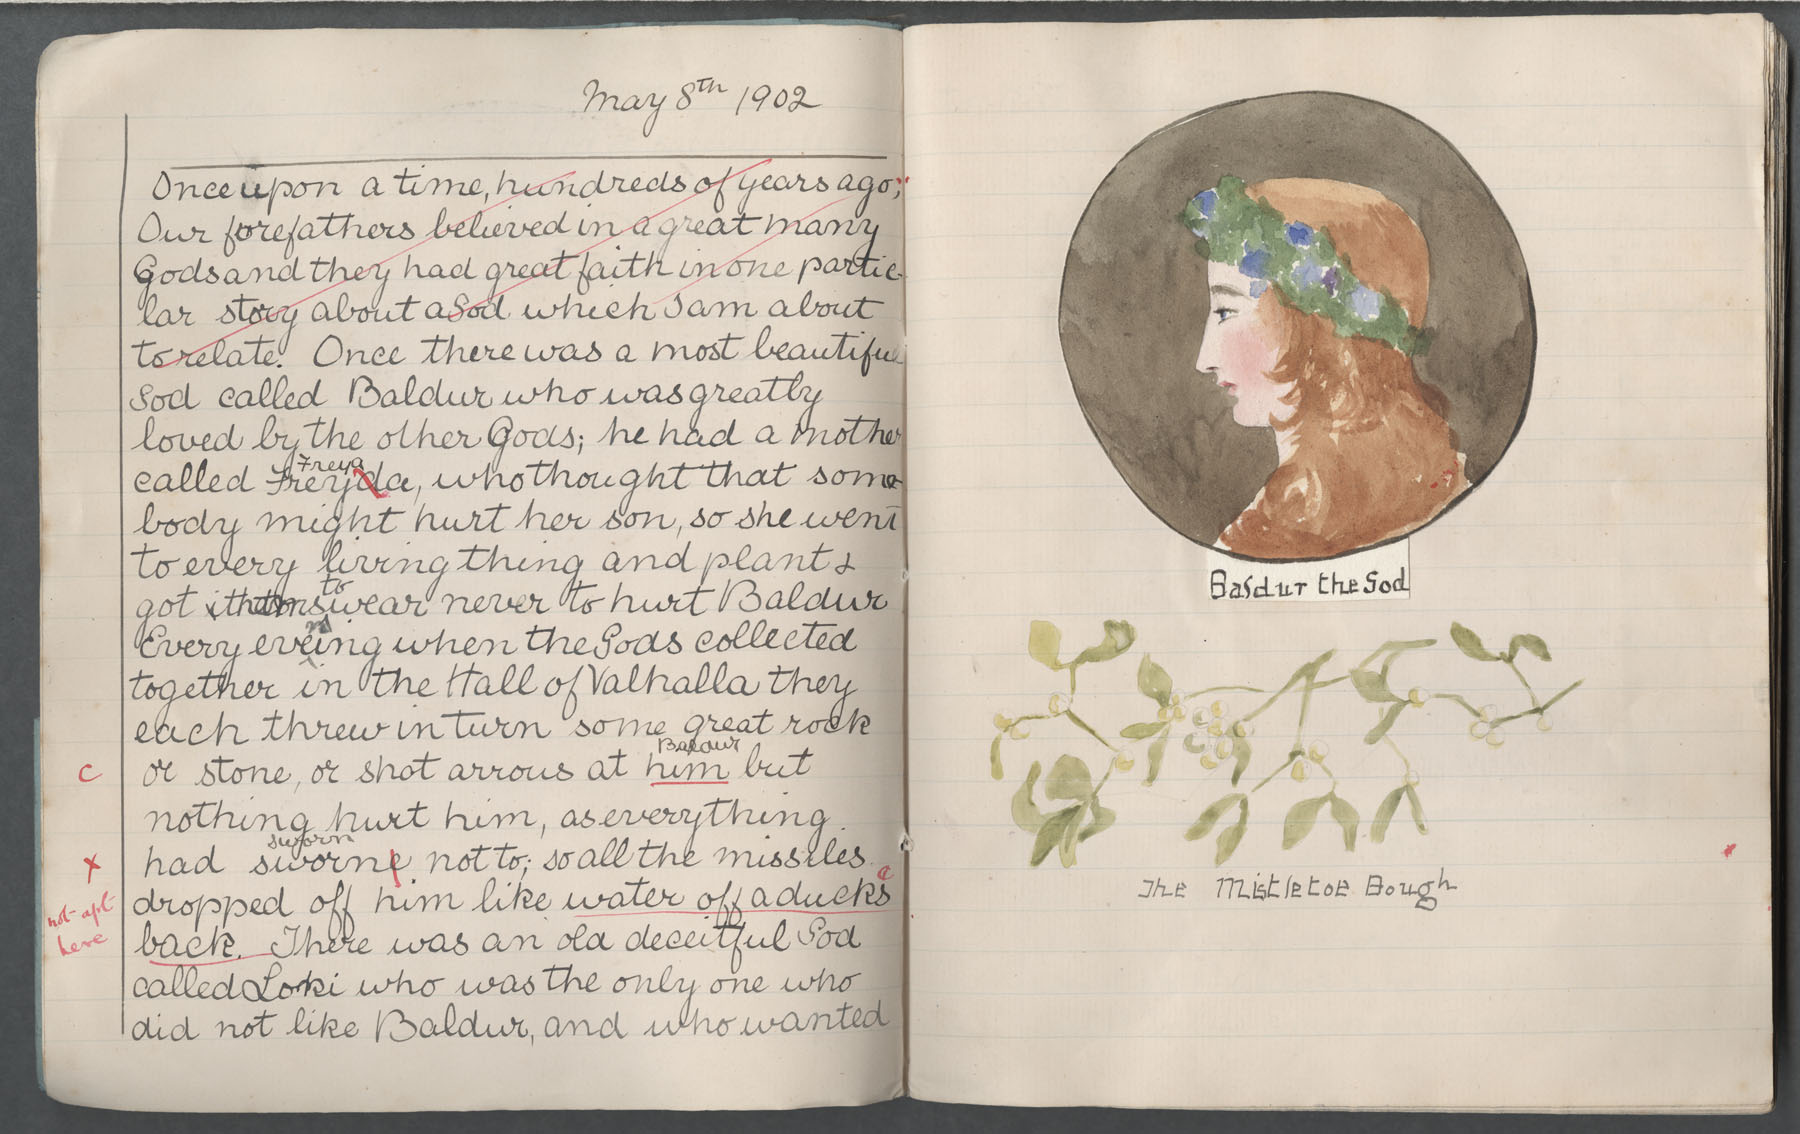 May 8th 1902
Once upon a time, hundreds of years ago;
Our forefathers believed in a great many
Gods and they had great faith in one partic-
lar story about a God which I am about
to relate. Once there was a most beautiful
God called Baldur who was greatly
loved by the other Gods; he had a mother
Freya
called Freyda, who thought that some-
body might hurt her son, so she went
to every living thing and plant &
to
got them swear never to hurt Baldur
n
Every eveing when the Gods collected
together in the Hall of Valhalla they
each threw in turn some great rock
Baldur
c or stone, or shot arrous at him but
nothing hurt him, as everything
sworn
x had sworne not to; so all the missiles
not apt here
dropped off him like water off a ducks
back. There was an old deceitful God
called Loki who was the only one who
did not like Baldur, and who wanted
Baldur the God
The Mistletoe Bough